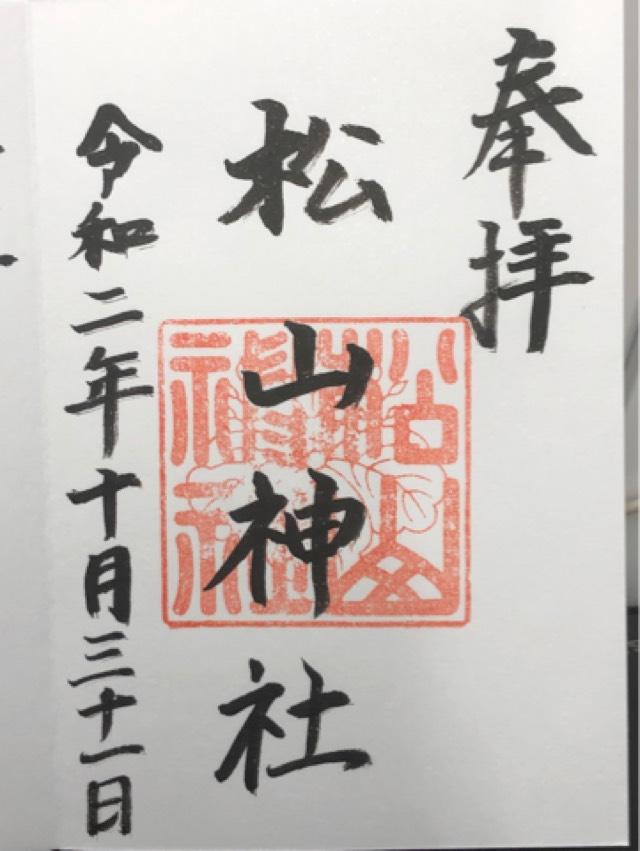 奉拝
松山神社
令和二年十月三十一日
松山神社